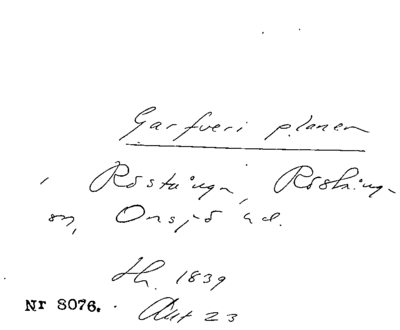 Garfveri planen
i Röstånga, Röstång-
sn, Onsjö hd.
Hr. 1839
Nr 8076. Akt 23